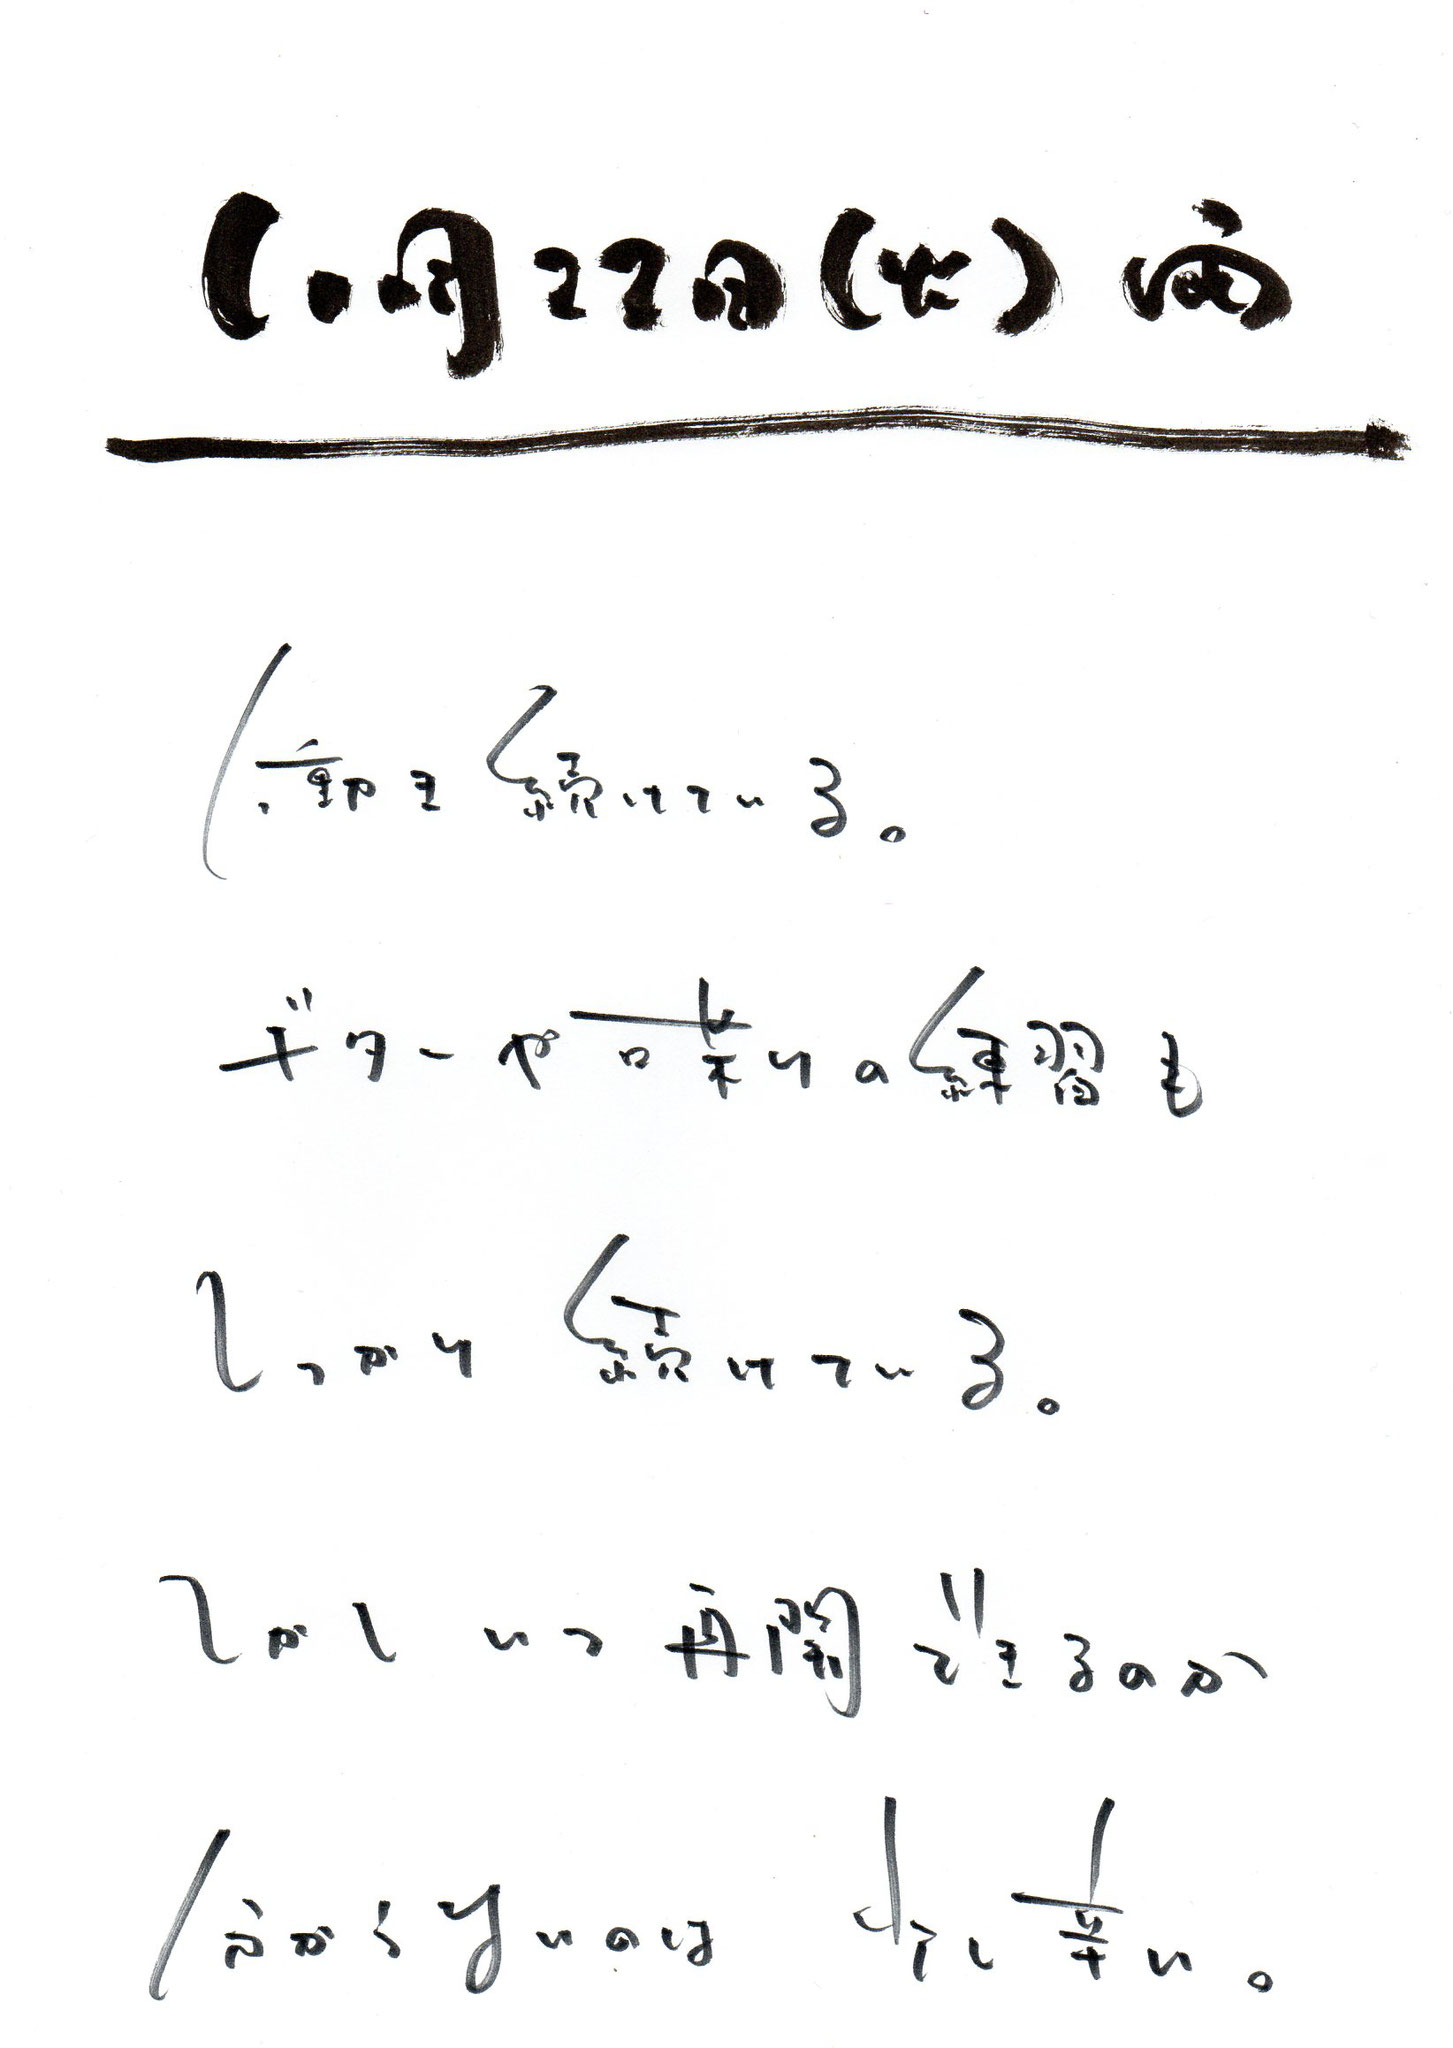 10月22日(火)雨
活動を続けている。
ギターや叩きの練習も
しっかり続けている。
しかしいつ再開できるのか
分からないのは 少し辛い。